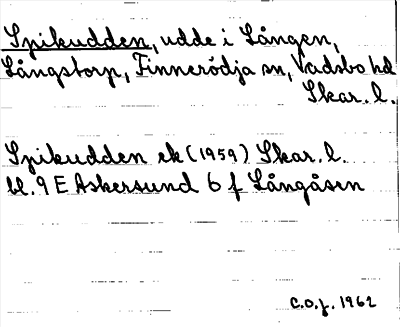 Spikudden, udde i Sången,
Långstorp, Finnerödja sn, Vadsbo hd
Skar. l.
Spikudden ek (1959) Skar. l.
bl. 9 E Askersund 6 f Långåsen
C.O.J. 1962